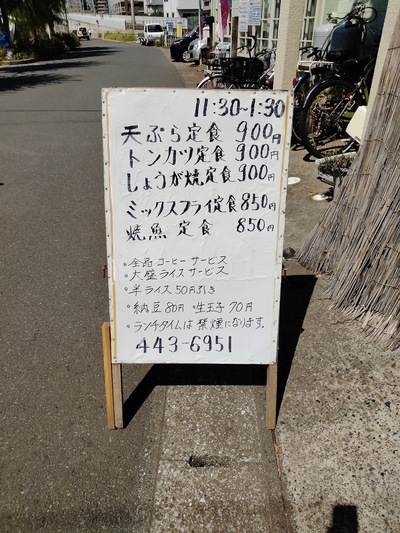 11:30~1:30
天ぷら定食 900円
トンカツ定食 900円
しょうが焼定食 900円
ミックスフライ定食 850円
焼魚 定食 850円
。全品コーヒーサービス
。大盛ライスサービス
。半ライス 50円引き
。納豆 80円 。生玉子 70円
。ランチタイムは 禁煙になります。
443-6951